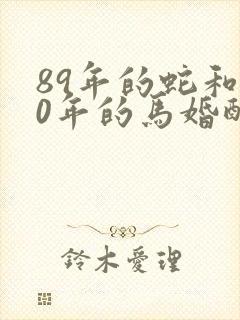 89年的蛇和
0年的馬婚
鈴木愛理